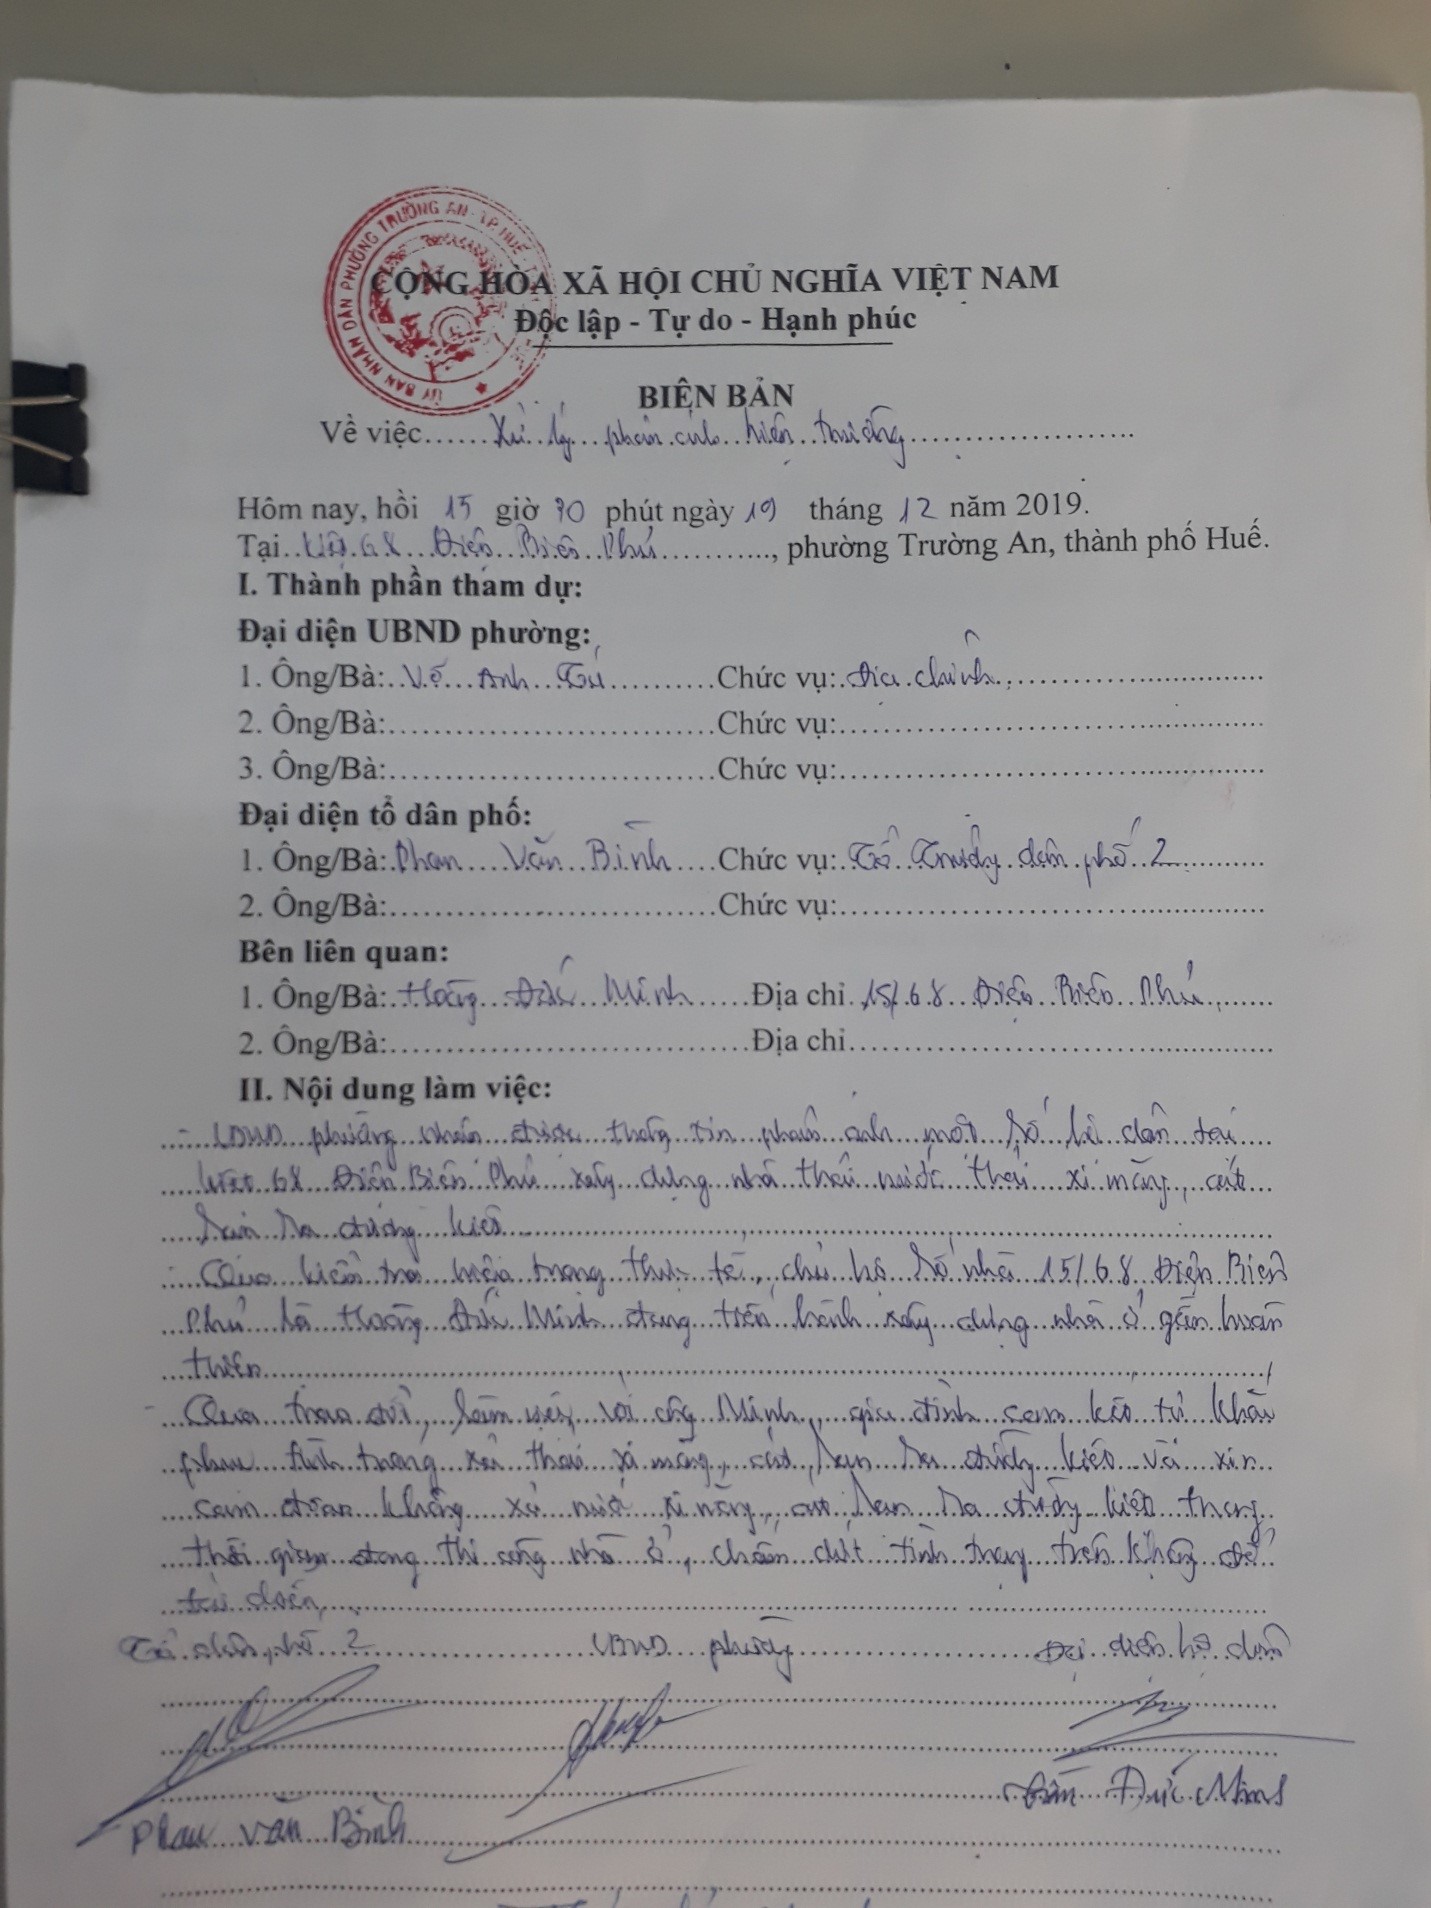 ỦY BAN NHÂN DÂN PHƯỜNG TRƯỜNG AN - TP HUẾ
CỘNG HÒA XÃ HỘI CHỦ NGHĨA VIỆT NAM
Độc lập - Tự do - Hạnh phúc
BIÊN BẢN
Về việc...... Xử lý phản ánh hiện trường......
Hôm nay, hồi 15 giờ 30 phút ngày 19 tháng 12 năm 2019.
Tại..Kiệt 68 Điện Biên Phủ..........., phường Trường An, thành phố Huế.
I. Thành phần tham dự:
Đại diện UBND phường:
1. Ông/Bà:..Võ Anh Tú...........Chức vụ:.Địa chính..........
2. Ông/Bà:..............................Chức vụ:..............................
3. Ông/Bà:..............................Chức vụ:..............................
Đại diện tổ dân phố:
1. Ông/Bà:.Phan Văn Bình Chức vụ:.Tổ Trưởng dân phố 2..........
2. Ông/Bà:..............................Chức vụ:..............................
Bên liên quan:
1. Ông/Bà:.Hoàng Đức Minh......Địa chỉ.15/68 Điện Biên Phủ.......
2. Ông/Bà:..............................Địa chỉ..............................
II. Nội dung làm việc:
- UBND phường nhận được thông tin phản ánh một số hộ dân tại
kiệt 68 Điện Biên Phủ xây dựng nhà thải nước thải xi măng, cát
sạn ra đường kiệt
- Qua kiểm tra hiện trạng thực tế, chủ hộ số nhà 15/68 Điện Biên
Phủ là Hoàng Đức Minh đang tiến hành xây dựng nhà ở gần hoàn
thiện
- Qua trao đổi, làm việc với ông Minh, gia đình cam kết tự khắc
phục tình trạng xả thải xi măng, cát, sạn ra đường kiệt và xin
cam đoan không xả nước xi măng, cát, sạn ra đường kiệt trong
thời gian đang thi công nhà ở, chấm dứt tình trạng trên không để
tái diễn
Tổ dân phố 2 UBND phường Đại diện hộ dân
Phan Văn Bình Đức Minh